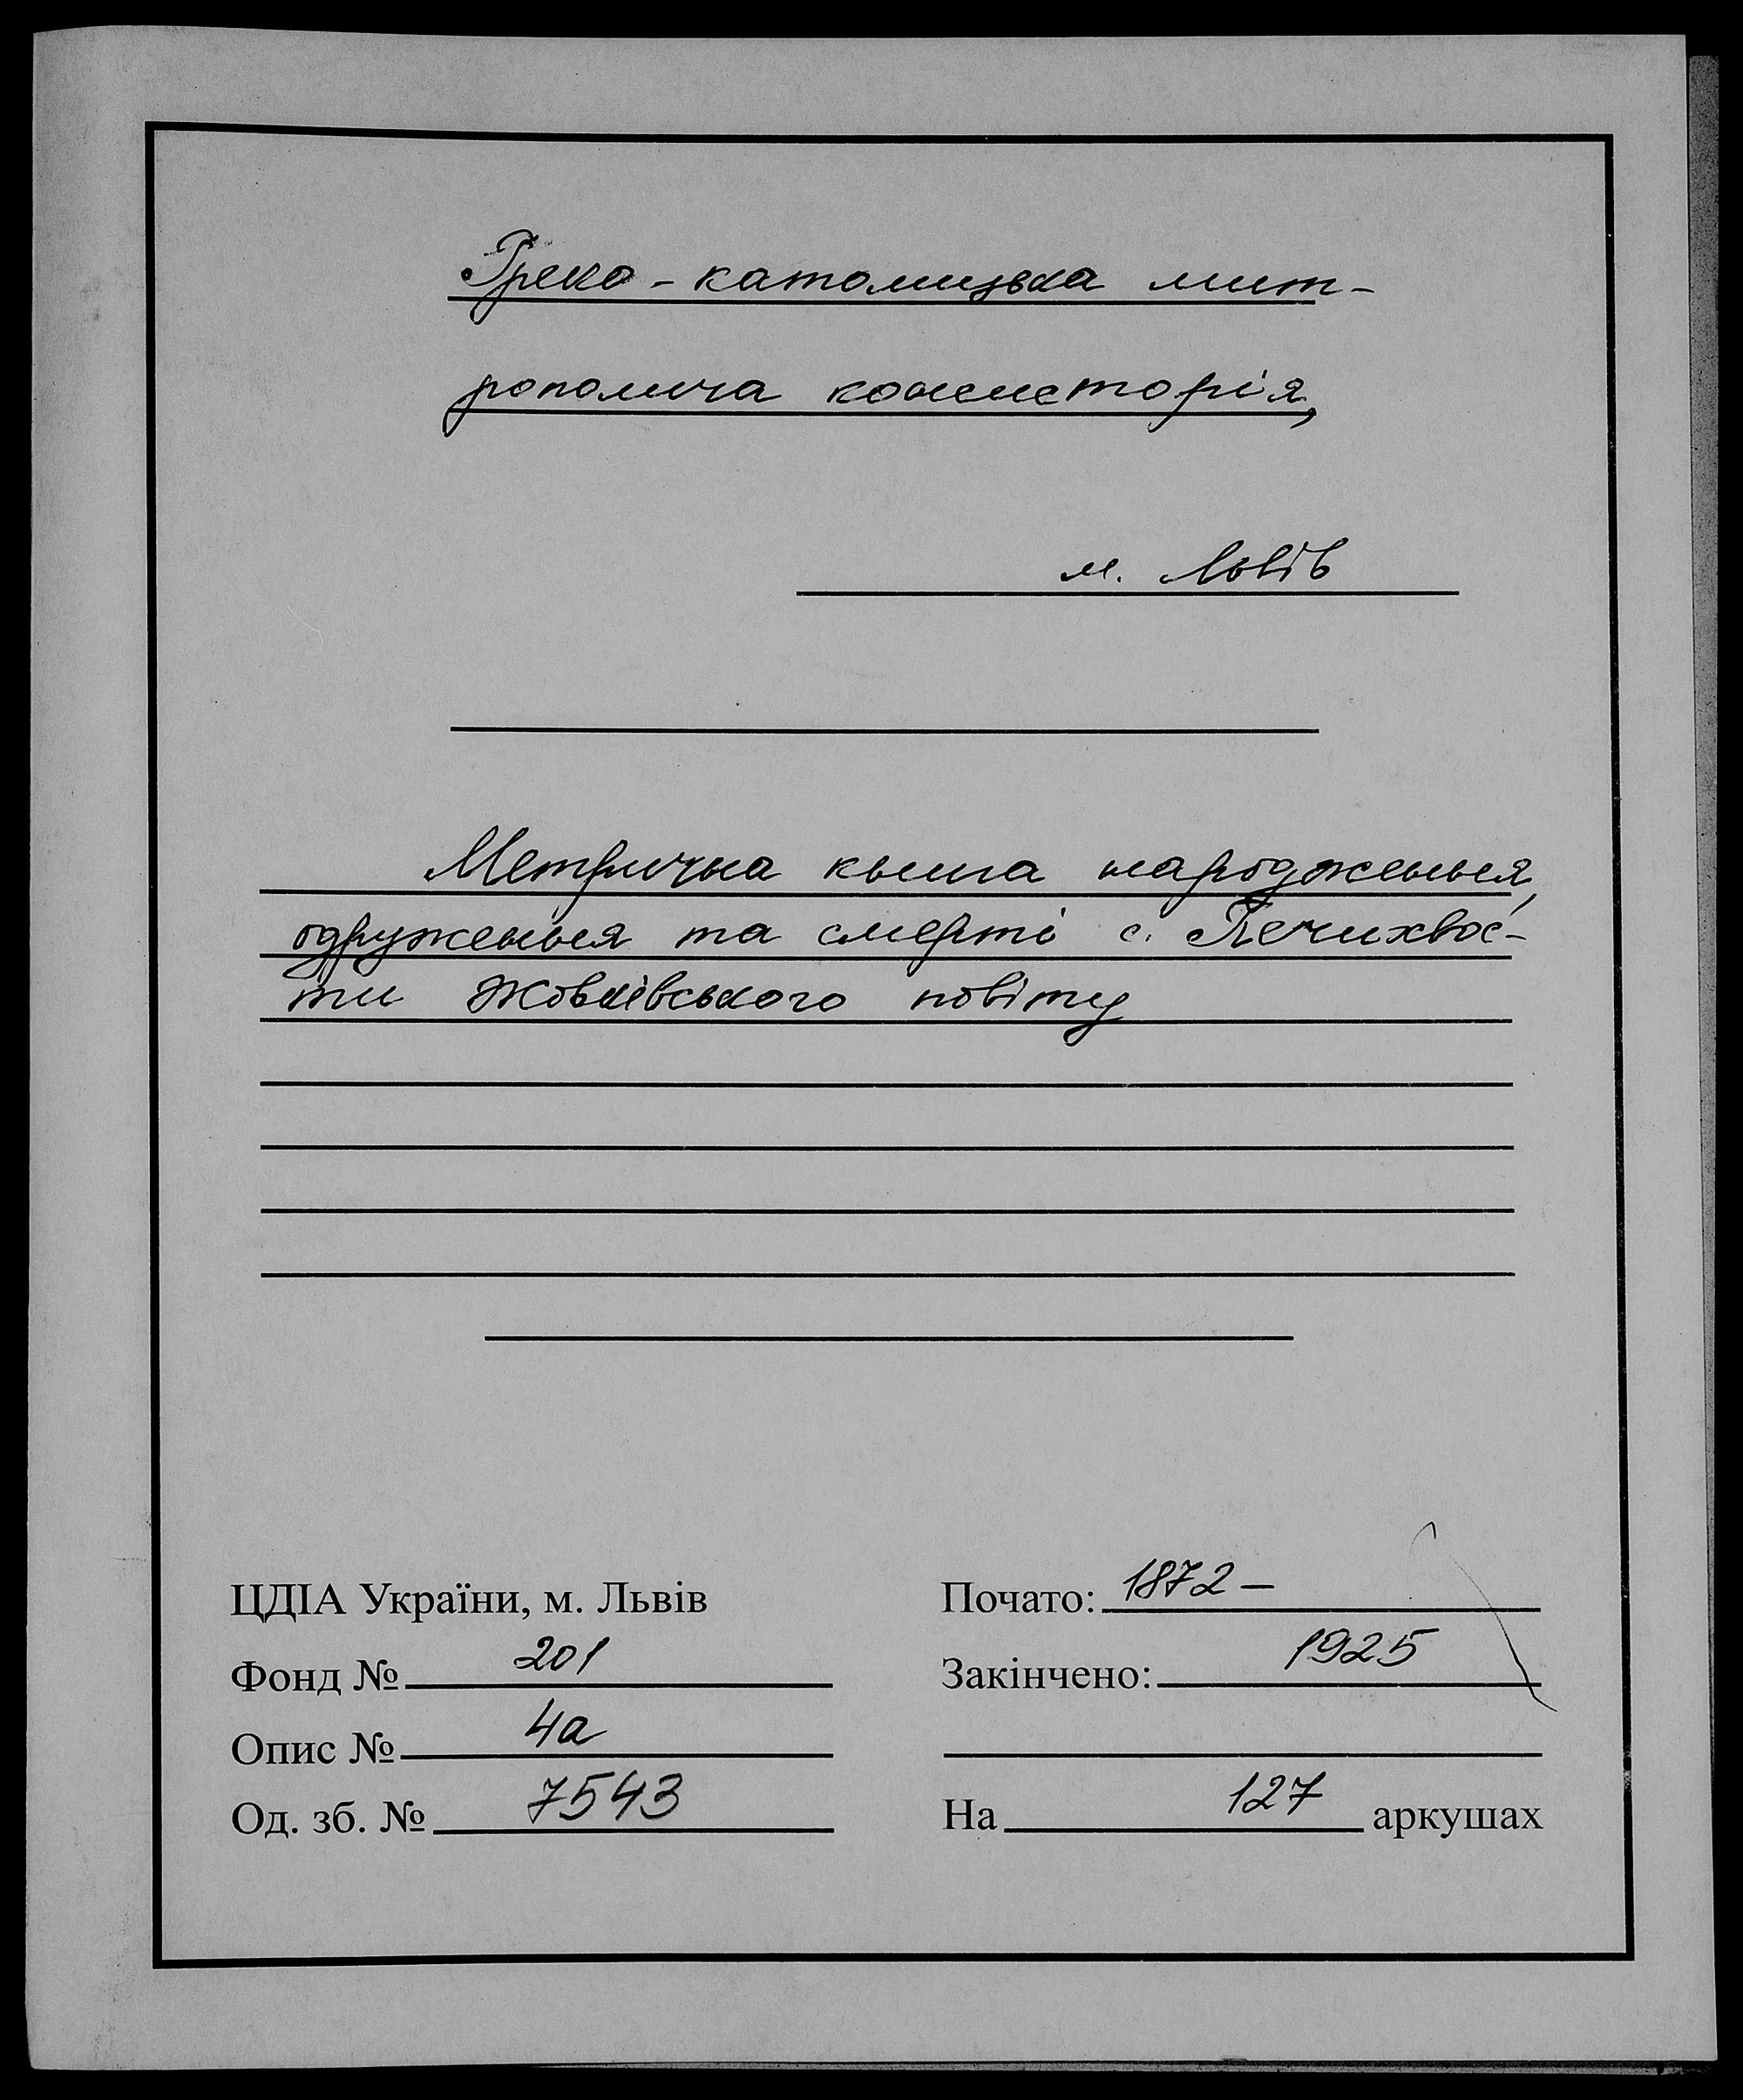 Греко-католицька мит-
рополича консисторія,
м. Львів
Метрична книга народження,
одруження та смерті с. Печихвос-
ти Жовківського повіту
ЦДІА України, м. Львів
Почато: 1872 –
Фонд № 201
Закінчено: 1925
Опис № 4а
Од. зб. № 7543
На 127 аркушах